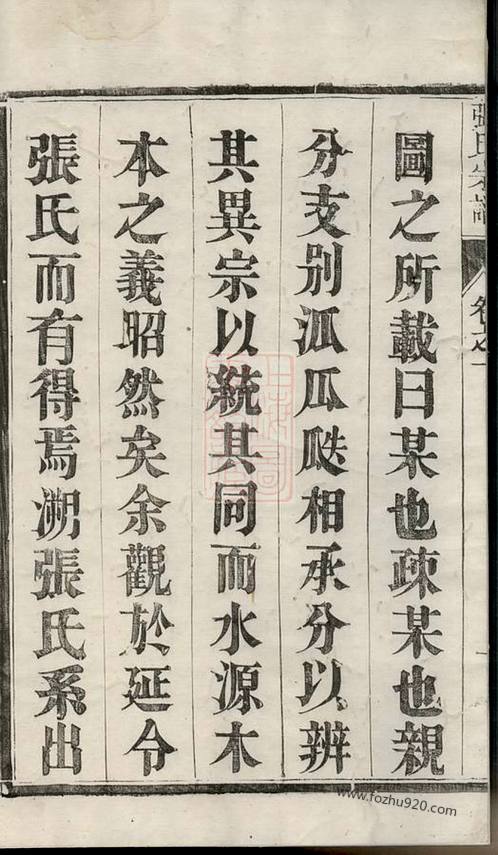 張氏宗譜
卷之一
圖之所載曰某也疎某也親
分支別泒瓜瓞相承分以辨
其異宗以統其同而水源木
本之義昭然矣余觀於延令
張氏而有得焉溯張氏系出
www.fozhu920.com